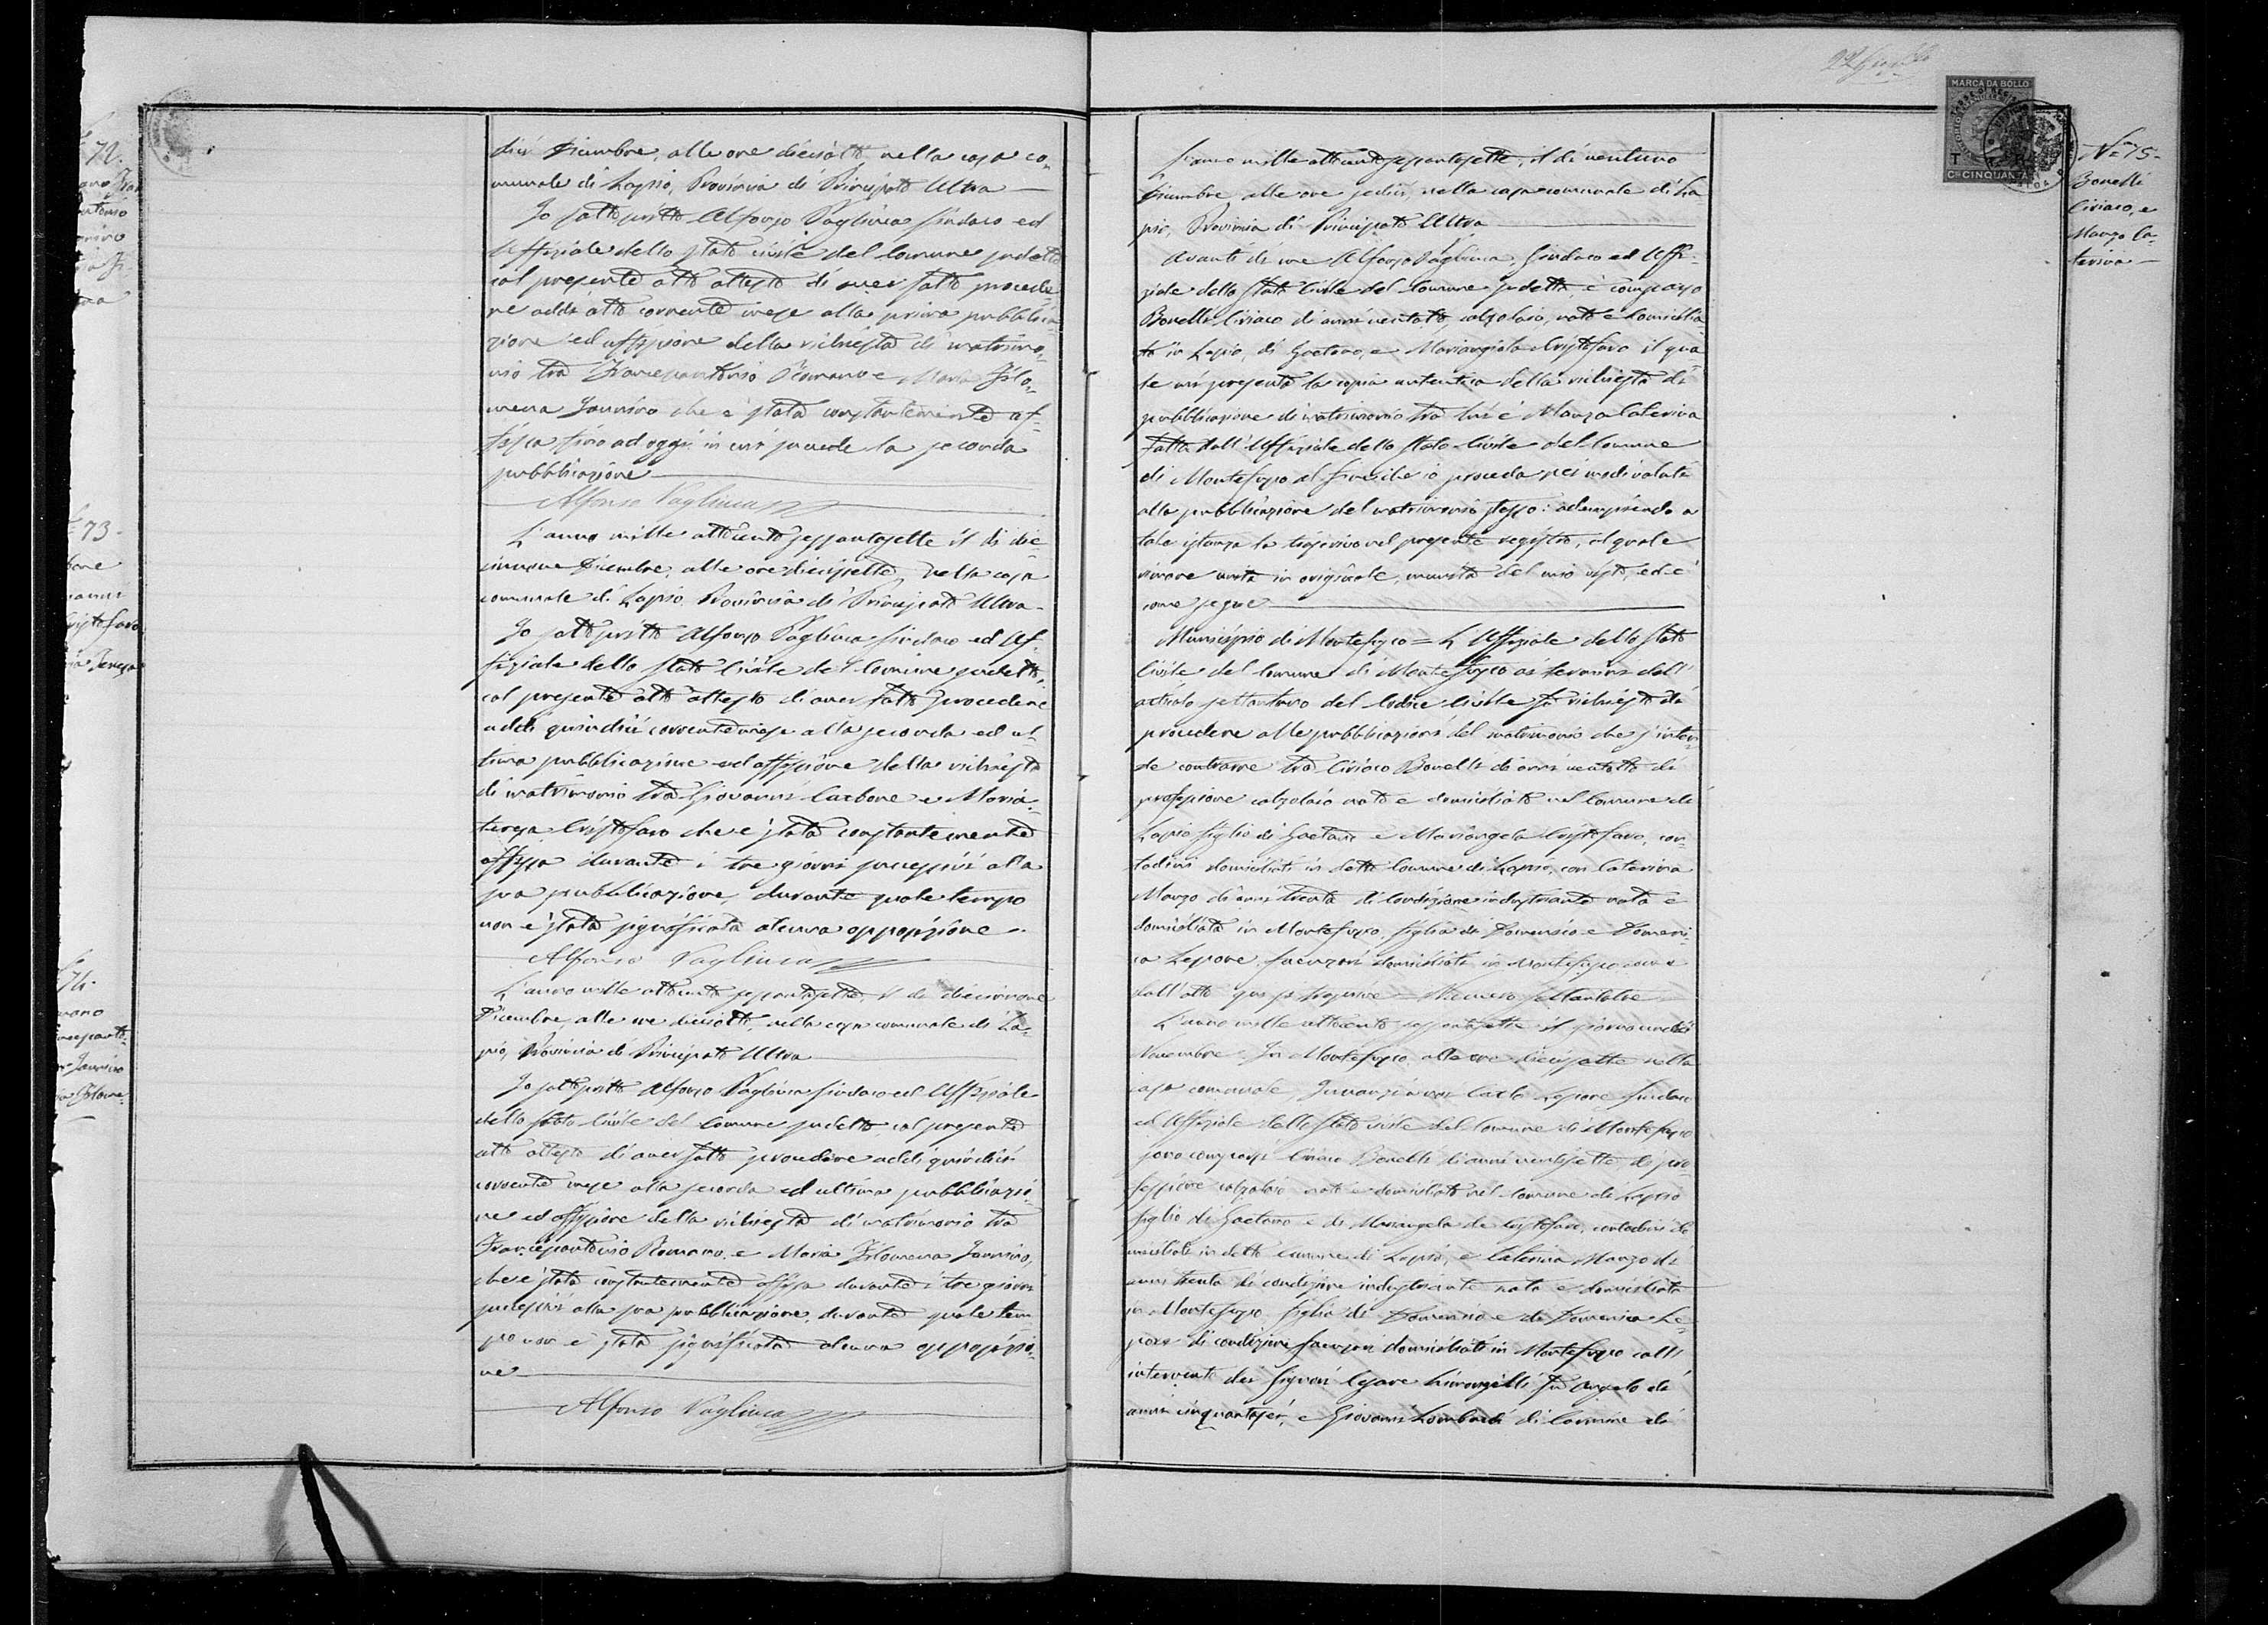 72.
dici Dicembre, alle ore dieciotto, nella casa co-
munale di Lapio, Provincia di Principato Ultra
Io sottoscritto Alfonso Vagliuca Sindaco ed
Uffiziale dello stato civile del Comune sudetto
col presente atto attesto di aver fatto procede-
re addì otto corrente mese alla prima pubblica-
zione ed affissione della richiesta di matrimo-
nio tra Francesantonio Romano e Maria Filo-
mena Iannino che è stata constantemente af-
fissa fino ad oggi in cui succede la seconda
pubblicazione
Alfonso Vagliuca
73.
L'anno mille ottocento sessantasette il dì die-
cinnove Dicembre, alle ore diecisette, nella casa
comunale di Lapio, Provincia di Principato Ultra
Io sottoscritto Alfonso Vagliuca Sindaco ed Uf-
fiziale dello stato Civile del Comune sudetto,
col presente atto attesto di aver fatto procedere
addì quindici corrente mese alla seconda ed ul-
tima pubblicazione ed affissione della richiesta
di matrimonio tra Giovanni Carbone e Maria
Teresa Cristofaro che è stata constantemente
affissa durante i tre giorni successivi alla
sua pubblicazione, durante quale tempo
non è stata significata alcuna opposizione
Alfonso Vagliuca
74.
L'anno mille ottocento sessantasette, il dì diecinnove
Dicembre, alle ore dieciotto, nella casa comunale di La-
pio, Provincia di Principato Ultra
Io sottoscritto Alfonso Vagliuca Sindaco ed Uffiziale
dello stato Civile del Comune sudetto, col presente
atto attesto di aver fatto procedere addì quindici
corrente mese alla seconda ed ultima pubblicazio-
ne ed affissione della richiesta di matrimonio tra
Francesantonio Romano e Maria Filomena Iannino,
che è stata constantemente affissa durante i tre giorni
successivi alla sua pubblicazione, durante quale tem
po non è stata significata alcuna opposizio-
ne
Alfonso Vagliuca
MARCA DA BOLLO
Cmi CINQUANTA
N.° 75.
Bonelli
Ciriaco, e
Manzo Ca-
terina
L'anno mille ottocentosessantasette, il dì ventuno
Dicembre, alle ore sedici, nella casa comunale di La
pio, Provincia di Principato Ultra
Avanti di me Alfonso Vagliuca, Sindaco ed Uffi-
ziale dello stato Civile del Comune sudetto, è comparso
Bonelli Ciriaco di anni ventotto, calzolaio, nato e domicilia-
to in Lapio, di Gaetano, e Mariangiola Cristofaro il qua
le mi presenta la copia autentica della richiesta di
pubblicazione di matrimonio tra lui e Manzo Caterina
fatta dall'Uffiziale dello stato Civile del Comune
di Montefusco al fine che io proceda nei modi voluti
alla pubblicazione del matrimonio stesso: adempiendo a
tale istanza la trascrivo nel presente registro, il quale
rimane unita in originale, munita del mio visto, ed è
come segue
Municipio di Montefusco = L'Uffiziale dello stato
Civile del Comune di Montefusco ai termini dell'
articolo settantuno del Codice Civile fu richiesto di
procedere alle pubblicazioni del matrimonio che s'inten-
de contrarre tra Ciriaco Bonelli di anni ventotto di
professione calzolaio nato e domiciliato nel Comune di
Lapio figlio di Gaetano e Mariangela Cristofaro, con-
tadini domiciliati in detto Comune di Lapio, con Caterina
Manzo di anni trenta di condizione industriante nata e
domiciliata in Montefusco, figlia di Domenico e Domeni-
ca Lepore faenzari domiciliati in Montefusco come
dall'atto qui si trascrive = Numero settantatre
L'anno mille ottocento sessantasette il giorno undici
Novembre In Montefusco alle ore diecisette nella
casa comunale, Innanzi a noi Carlo Lepore Sindaco
ed Uffiziale dello stato civile del Comune di Montefusco
sono comparsi Ciriaco Bonelli di anni ventisette di pro-
fessione calzolaio nato e domiciliato nel Comune di Lapio
figlio di Gaetano e di Mariangela de Cristofaro, contadini do
miciliati in detto Comune di Lapio, e Caterina Manzo di
anni trenta di condizione industriante nata e domiciliata
in Montefusco figlia di Domenico e di Domenica Le-
pore di condizione faenzari domiciliati in Montefusco coll'
intervento dei Signori Cesare fu Angelo di
anni cinquantasei, e Giovanni Lombardi di Carmine di